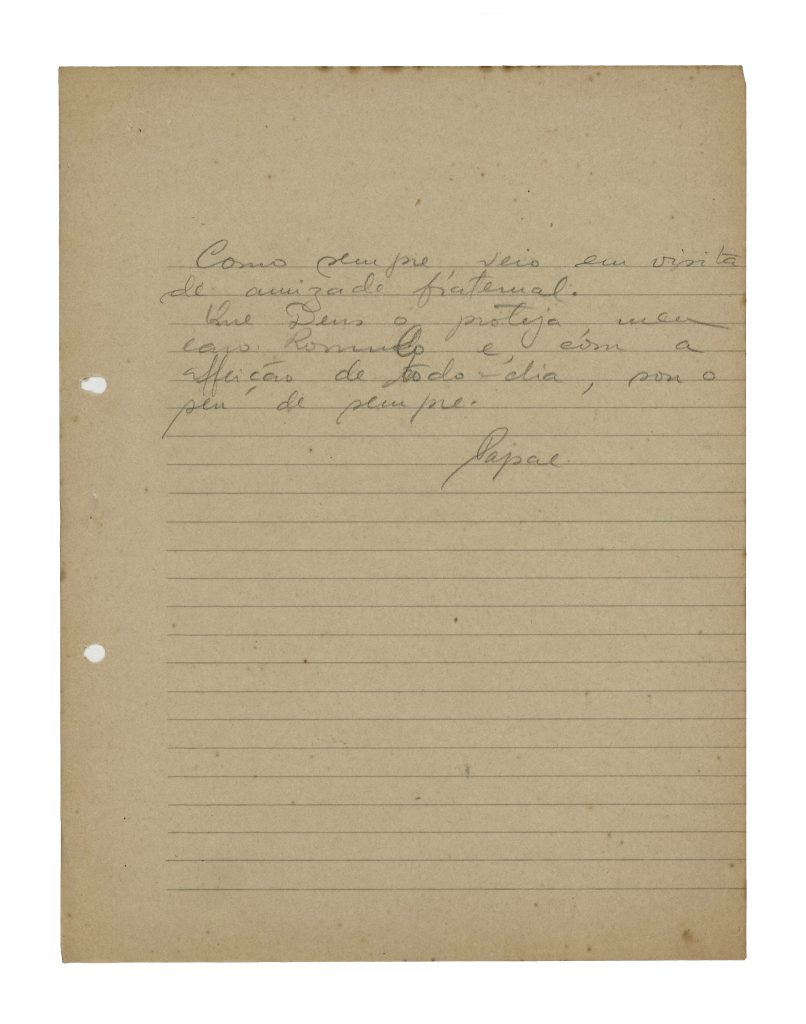 Como sempre veio em visita
de amizade fraternal.
Que Deus o proteja meu
caro Romulo e com a
affeição de todo-dia, sou o
seu de sempre.
Papae